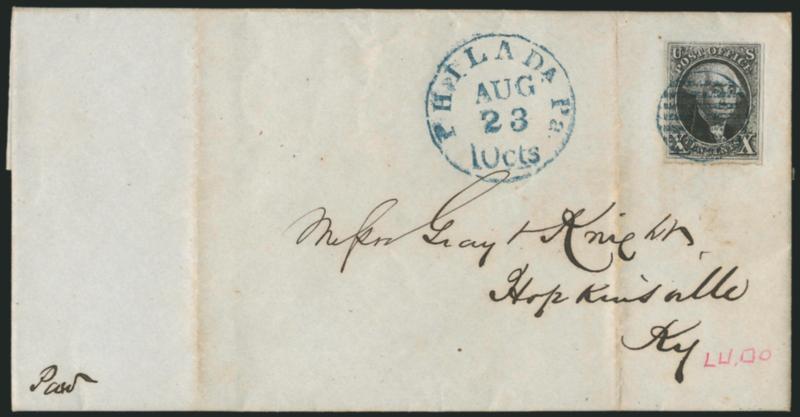 PHILADA Pa.
AUG
23
10cts
U S
POST OFFICE
X X
Messrs Gray & Knight
Hopkinsville
Ky
Paid